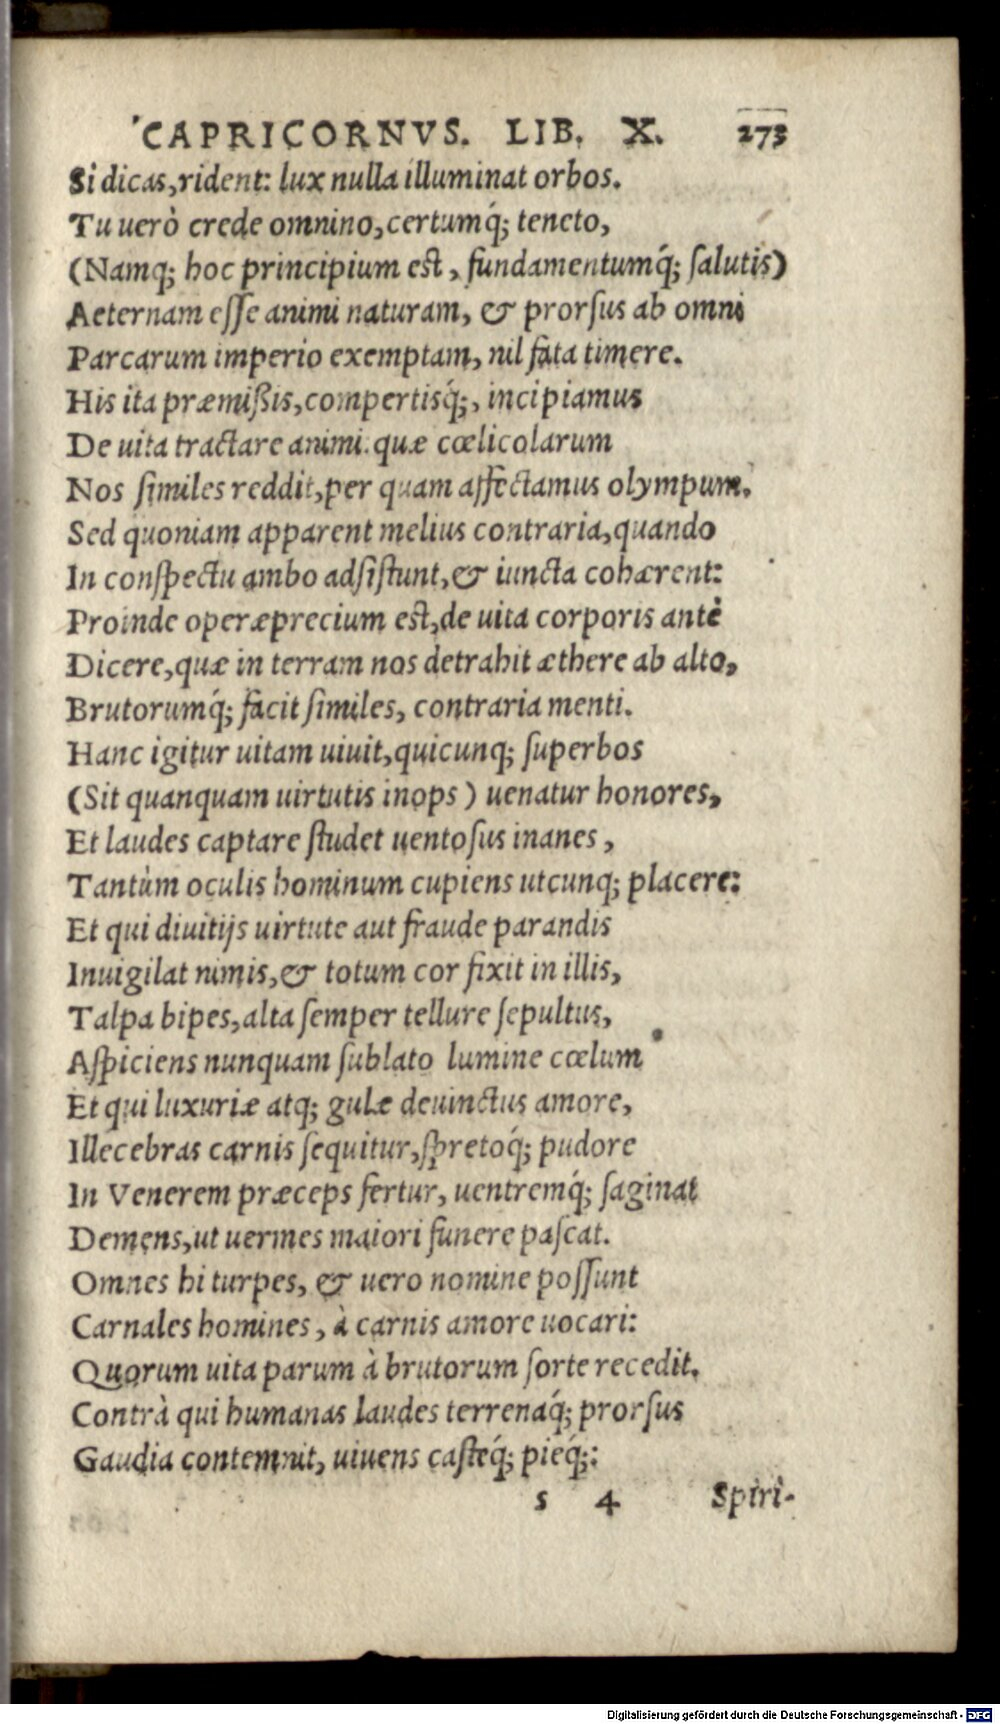 CAPRICORNVS. LIB. X. 273
Si dicas, rident: lux nulla illuminat orbos.
Tu uerò crede omnino, certumq́; teneto,
(Namq; hoc principium est, fundamentumq́; salutis)
Aeternam esse animi naturam, & prorsus ab omni
Parcarum imperio exemptam, nil fata timere.
His ita præmißis, compertisq́;, incipiamus
De uita tractare animi: quæ cœlicolarum
Nos similes reddit, per quam affectamus olympum.
Sed quoniam apparent melius contraria, quando
In conspectu ambo adsistunt, & iuncta cohærent:
Proinde operæprecium est, de uita corporis antè
Dicere, quæ in terram nos detrahit æthere ab alto,
Brutorumq́; facit similes, contraria menti.
Hanc igitur uitam uiuit, quicunq; superbos
(Sit quanquam uirtutis inops) uenatur honores,
Et laudes captare studet uentosus inanes,
Tantùm oculis hominum cupiens utcunq; placere:
Et qui diuitijs uirtute aut fraude parandis
Inuigilat nimis, & totum cor fixit in illis,
Talpa bipes, alta semper tellure sepultus,
Aspiciens nunquam sublato lumine cœlum
Et qui luxuriæ atq; gulæ deuinctus amore,
Illecebras carnis sequitur, spretoq́; pudore
In Venerem præceps fertur, uentremq́; saginat
Demens, ut uermes maiori funere pascat.
Omnes hi turpes, & uero nomine possunt
Carnales homines, à carnis amore uocari:
Quorum uita parum à brutorum sorte recedit.
Contrà qui humanas laudes terrenaq́; prorsus
Gaudia contemnit, uiuens casteq́; pieq́;:
s 4 Spiri-
Digitalisierung gefördert durch die Deutsche Forschungsgemeinschaft - DFG